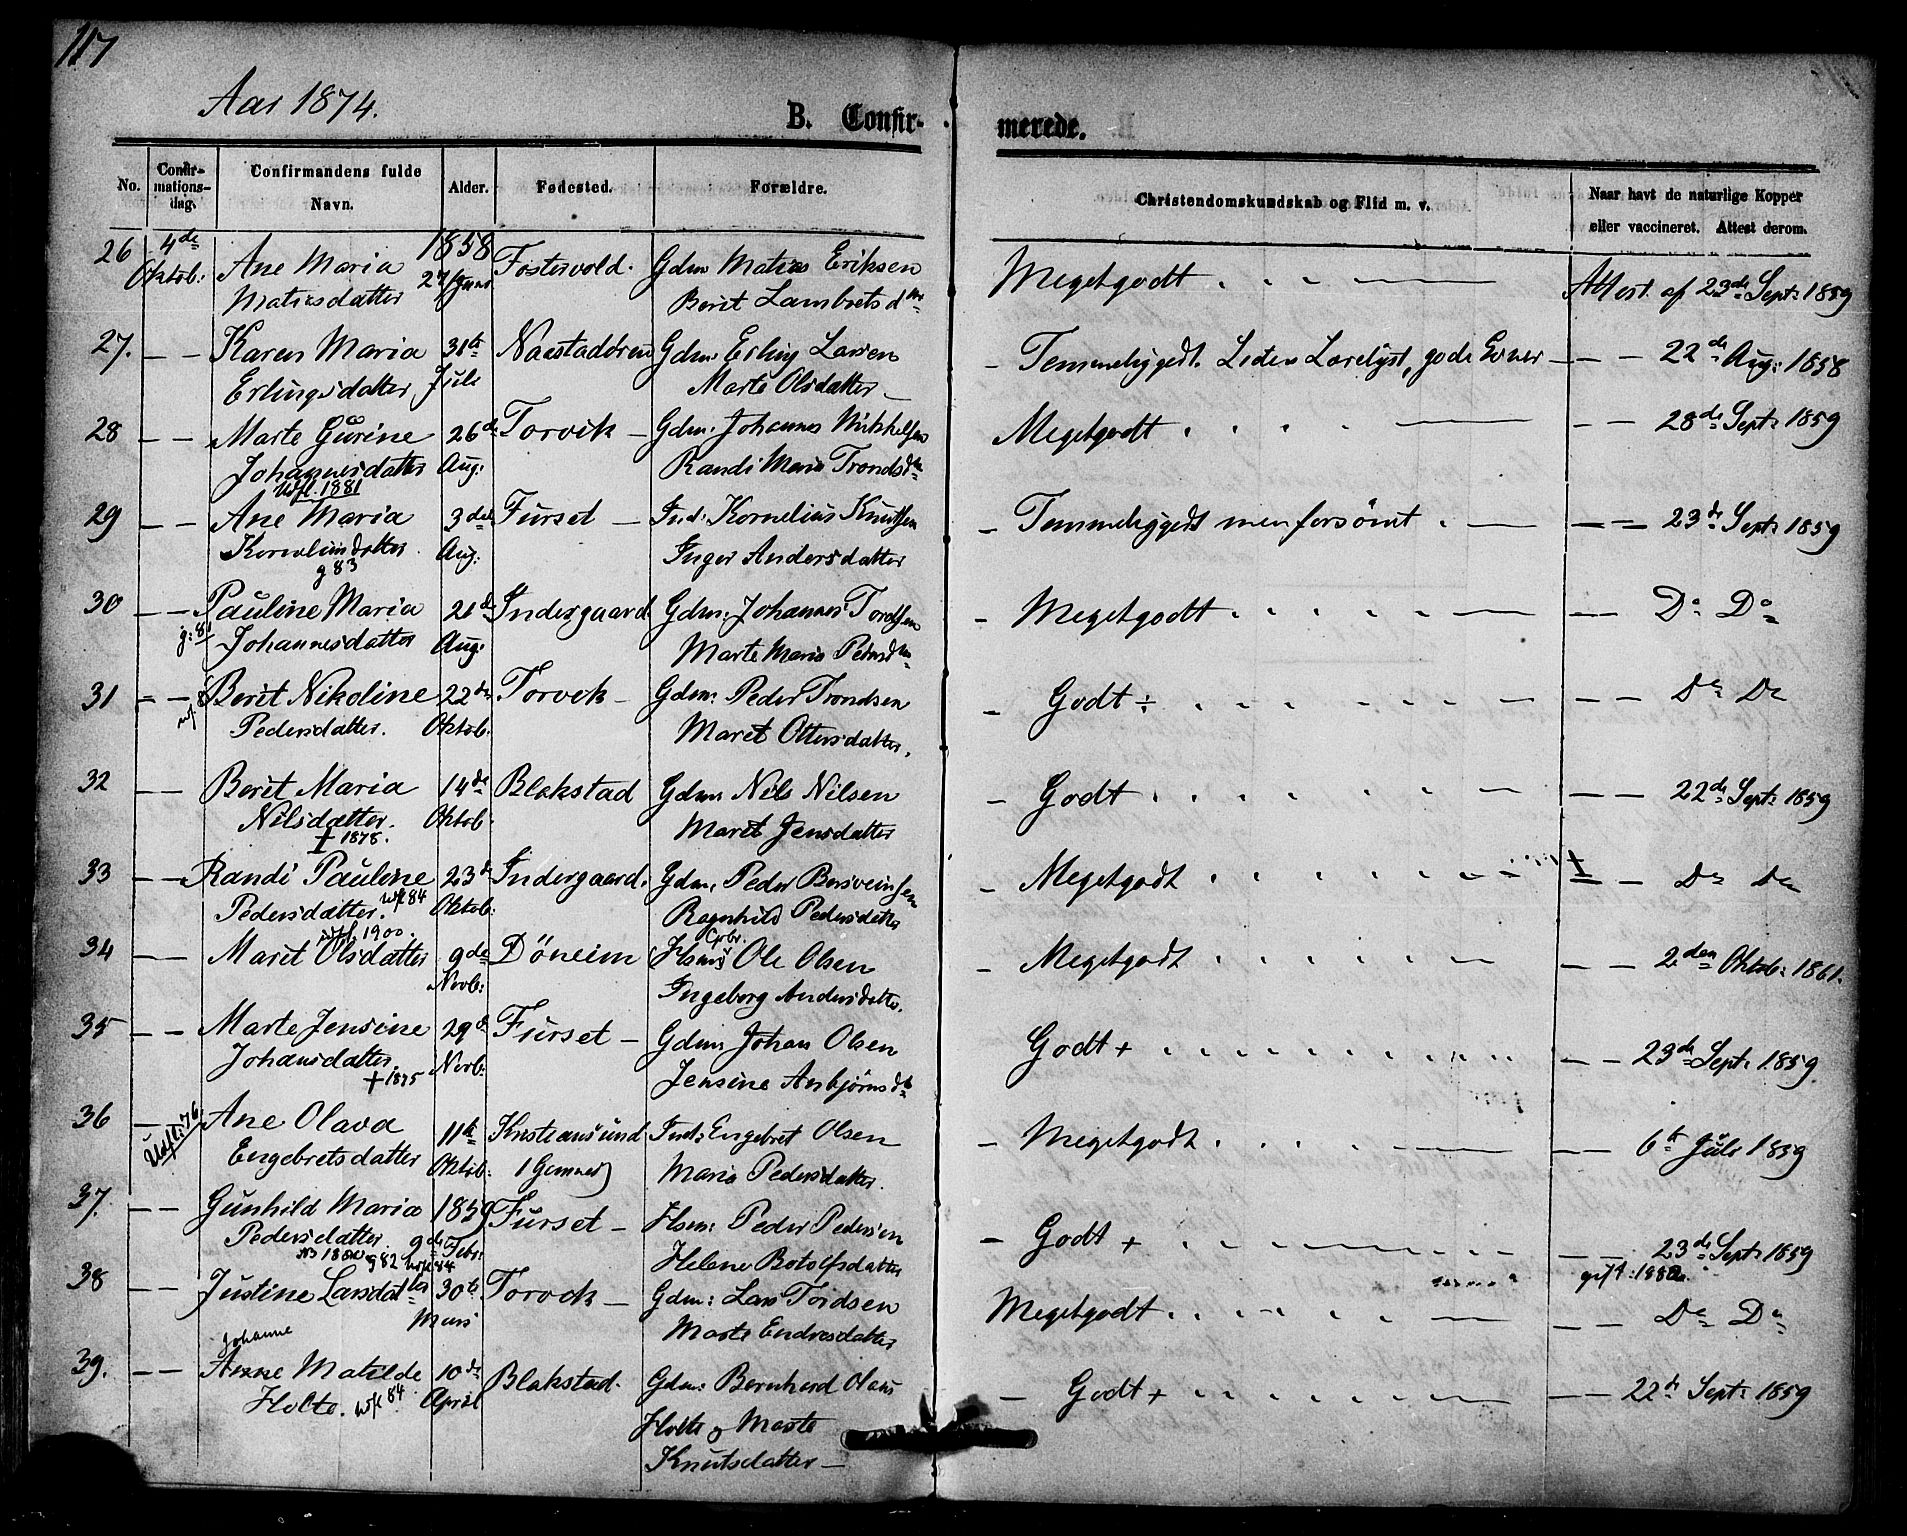 117
Aar 1874.
B. Confir- merede.
No. Confir-mations-dag. Confirmandens fulde Navn. Alder. Fødested. Forældre. Christendomskundskab og Flid m. v. Naar havt de naturlige Kopper eller vaccineret. Attest derom.
26 4de Oktob: Ane Maria 1858 Fostervold. Gdm Matias Eriksen Megetgodt Attest af 23de Sept: 1859
Matiasdatter 27 Berit Lambretsdtr
27. — — Karen Maria 31te Naastadøren Gdm. Erling Larsen - Temmeliggodt. Liden Lærelyst, gode Evner — — 22de Aug: 1858
Erlingsdatter Juli Marte Olsdatter —
28 — — Marte Gurine 26de Torvik — Gdm. Johannes Mikkelsen Megetgodt — — 28de Sept: 1859
Johannesdatter Aug: Randi Maria Trondsdtr
Utfl. 1881
29 — — Ane Maria 3die Furset — Ind: Kornelius Knutsen - Temmeliggodt men forsömt — — 23de Sept: 1859
Korneliusdatter Aug: Inger Andersdatter
g 83
30 — — Pauline Maria 21de Indergaard. Gdm: Johannes Tordsen - Megetgodt — — Do Do
g: 81 Johannesdatter Aug: Marte Maria Pedersdtr
31 — — Berit Nikoline 22de Torvik — Gdm: Peder Trondsen - Godt ÷ — — Do Do
Pedersdatter. Oktob: Maret Ottersdatter.
32 — — Berit Maria 14de Blakstad Gdm. Nils Nilsen - Godt — — 22de Sept: 1859
Nilsdatter. Oktob: Maret Jensdatter
† 1878.
33 — — Randi Pauline 23de Indergaard. Gdm. Peder Bersveinsen - Megetgodt — — Do Do
Pedersdatter. utfl 84 Oktob: Ragnhild Pedersdatter
utfl. 1900.
34 — — Maret Olsdatter 9de Döneim Hsm: Ole Olsen - Megetgodt — — 2den Oktob: 1861.
Novb: Ingeborg Andersdatter.
35 — — Marte Jensine 29de Furset — Gdm: Johan Olsen Godt + — — 23de Sept: 1859.
Johansdatter Novb: Jensine Asbjørnsdtr
† 1875
36 — Ane Olava 11te Kristiansund Ind: Engebret Olsen - Megetgodt — — 6te Juli 1859
Udfl: 76 Engebretsdatter Oktob: Maria Pedersdatter.
37. — — Gunhild Maria 1859 Furset — Hsm: Peder Pedersen - Godt + — — 23de Sept: 1859
Pedersdatter. 9de Febr: Helene Botolfsdatter gift: 1882.
g 82 utfl 84
38 — — Justine Larsdatter 30te Torvik — Gdm: Lars Tordsen Megetgodt — — Do Do
Mars Marte Endresdatter
Johanne
39. — — Anne Matilde 10de Blakstad. Gdm: Bernhard Olaus - Godt + — — 22de Sept: 1859
Holte. utfl 84. April Holte og Marte
Knutsdatter —